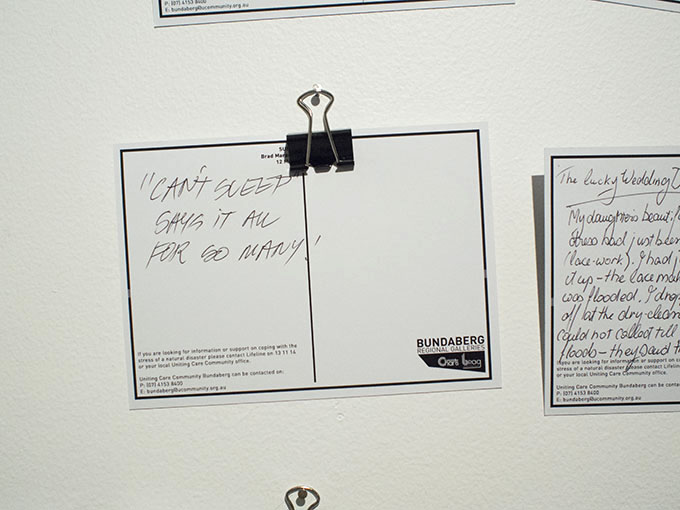 P: (07) 4153 8400
E: bundaberg@ucommunity.org.au
Brad Mar
12 M
"CAN'T SLEEP"
SAYS IT ALL
FOR SO MANY!
If you are looking for information or support on coping with the
stress of a natural disaster please contact Lifeline on 13 11 14
or your local Uniting Care Community office.
Uniting Care Community Bundaberg can be contacted on:
P: (07) 4153 8400
E: bundaberg@ucommunity.org.au
BUNDABERG
REGIONAL GALLERIES
The lucky Wedding D
My daughters beautif
dress had just been
(lace-work). I had j
it up - the lace mak
was flooded. I drop
of/ at the dry-clean
could not collect till
floods - they said th
If you are looking for information or support on c
stress of a natural disaster please contact Lifeline
or your local Uniting Care Community office.
Uniting Care Community Bundaberg can be conta
P: (07) 4153 8400
E: bundaberg@ucommunity.org.au